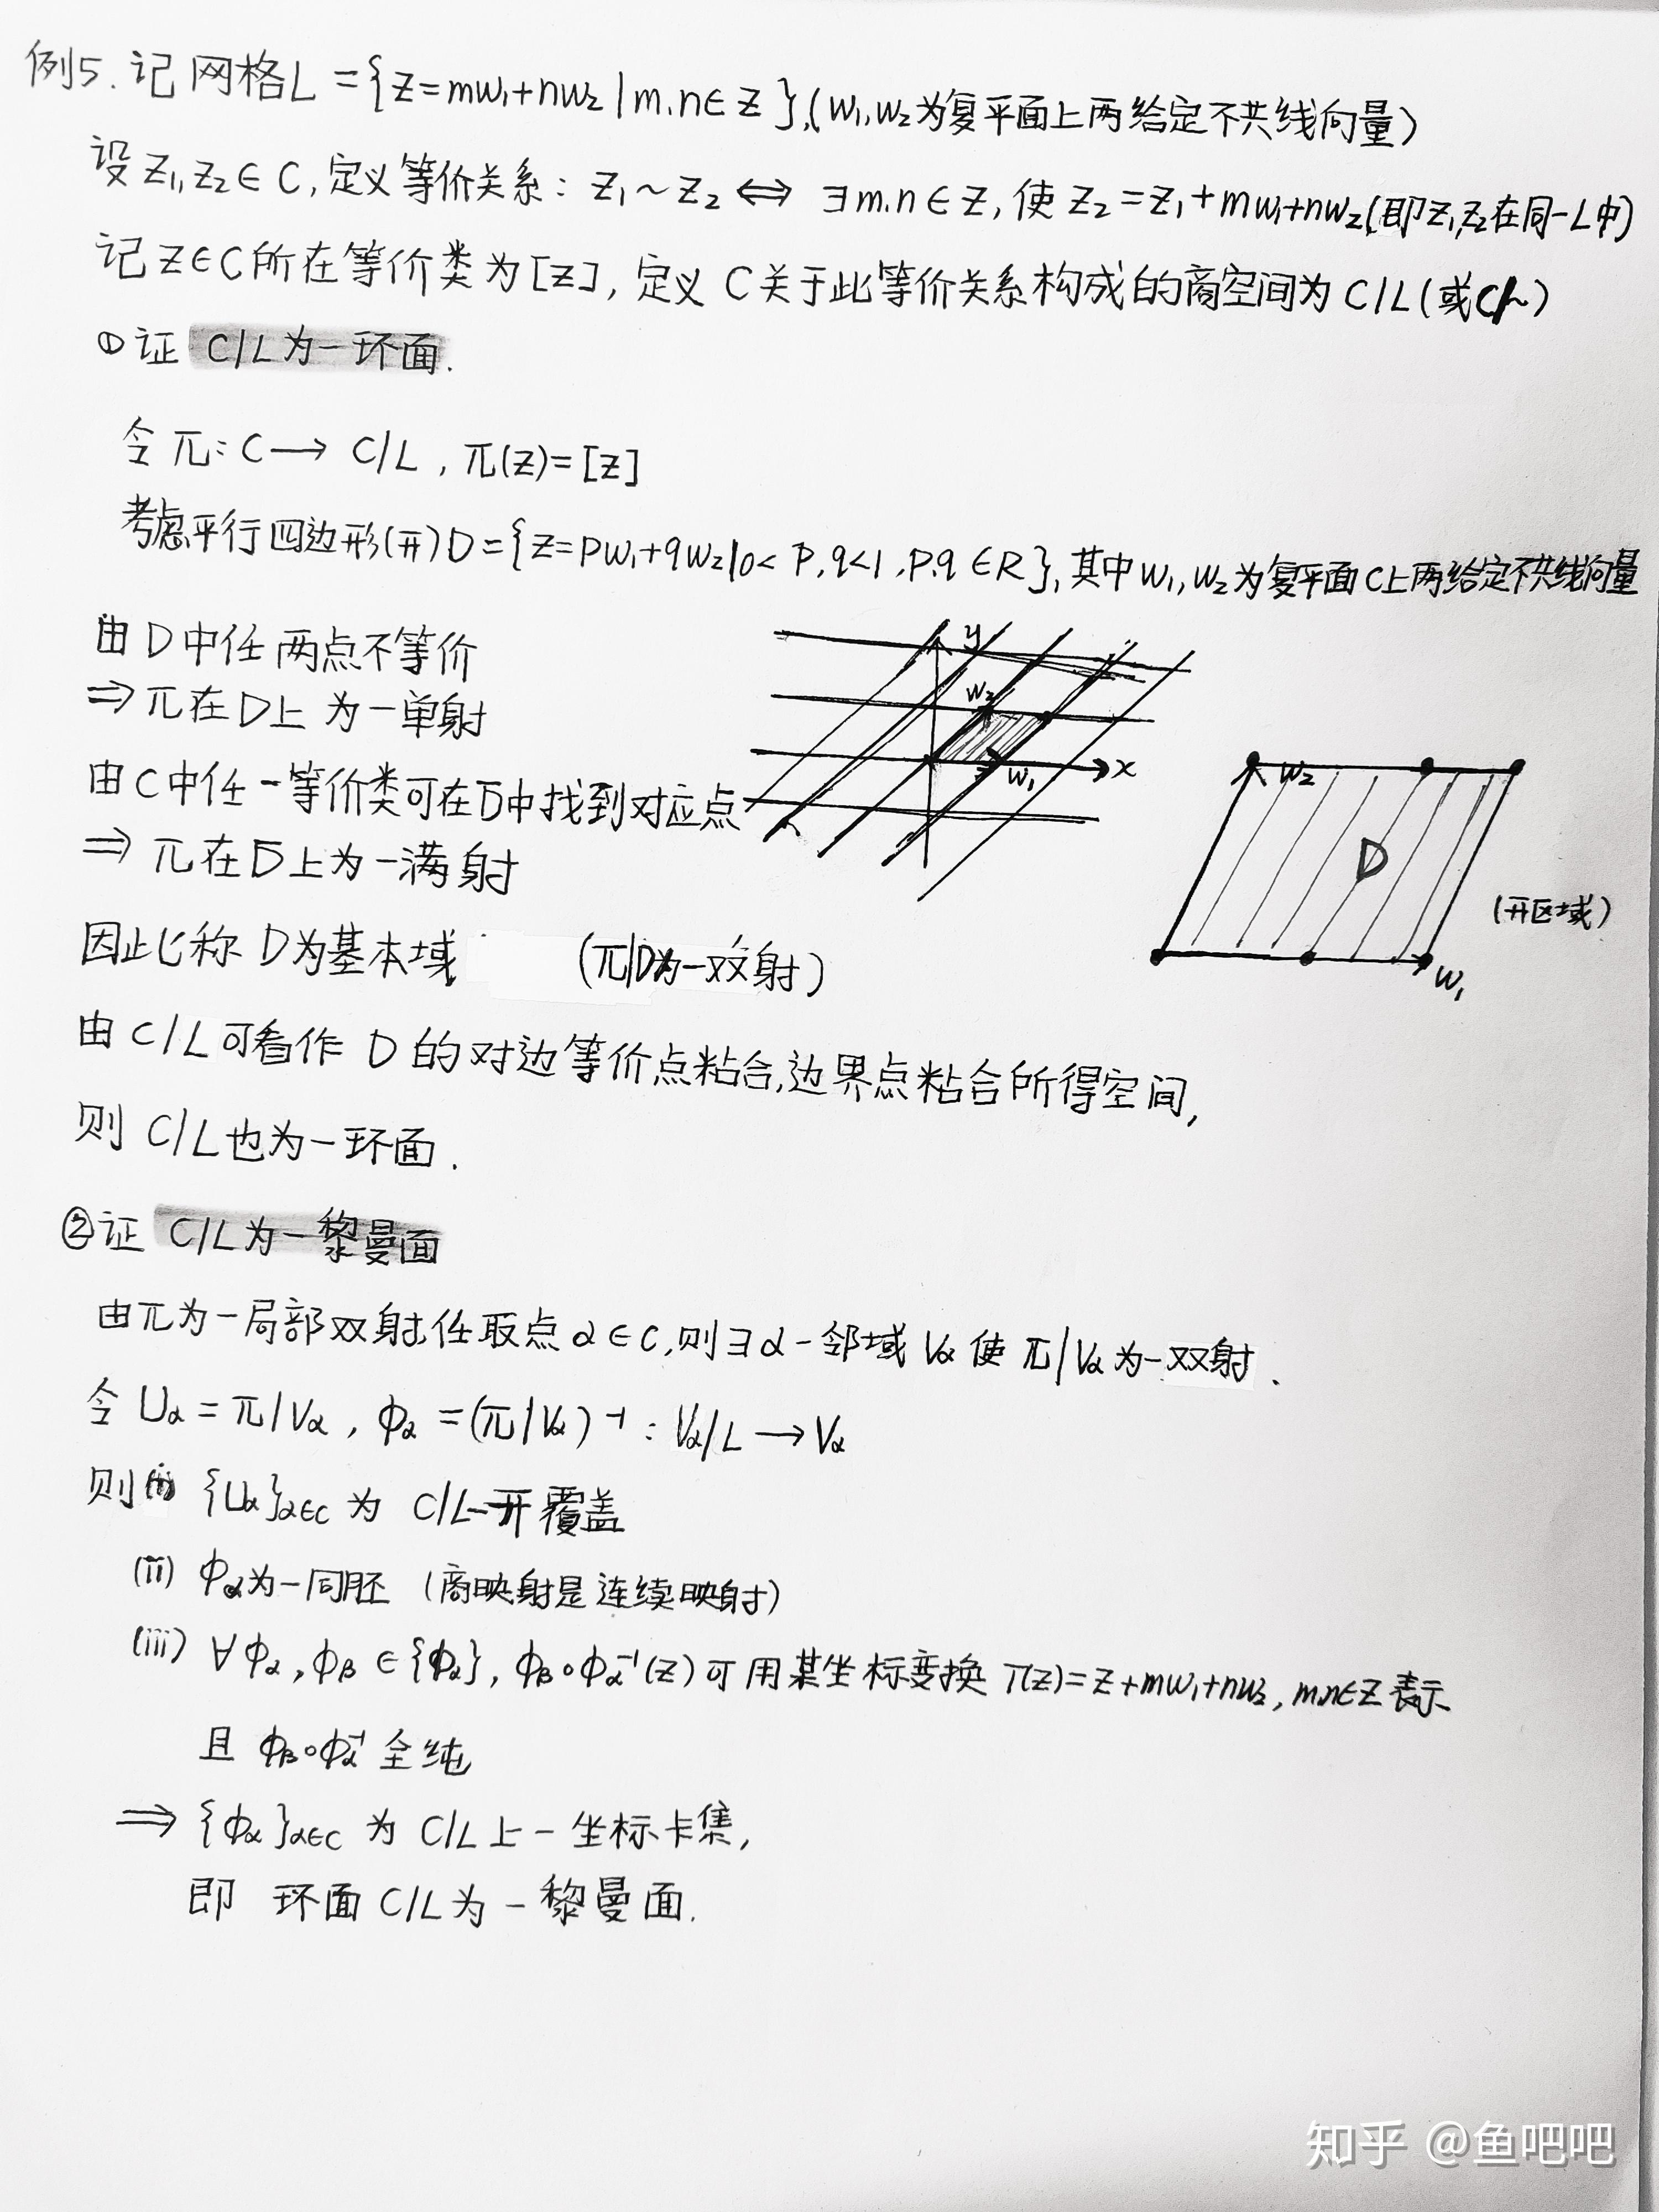 例5. 记网格L={z=mw₁+nw₂|m,n∈Z},(w₁,w₂为复平面上两给定不共线向量)
设z₁,z₂∈C,定义等价关系: z₁~z₂ ⇔ ∃m.n∈Z,使z₂=z₁+mw₁+nw₂(即z₁,z₂在同一L中)
记z∈C所在等价类为[z],定义C关于此等价关系构成的商空间为C/L(或C/~)
①证 C/L为一环面.
令π:C→C/L,π(z)=[z]
考虑平行四边形(开)D={z=pw₁+qw₂|0<p,q<1,p.q∈R},其中w₁,w₂为复平面C上两给定不共线向量
由D中任两点不等价
⇒π在D上为一单射
由C中任一等价类可在D̅中找到对应点
⇒π在D̅上为一满射
y
w₂
w₁
x
w₂
D
(开区域)
w₁
因此称D为基本域 (π|D为一双射)
由C/L可看作D的对边等价点粘合,边界点粘合所得空间,
则C/L也为一环面.
②证 C/L为一黎曼面
由π为一局部双射,任取点α∈C,则∃α一邻域Vα使π|Vα为一双射.
令Uα=π|Vα,ϕα=(π|Vα)⁻¹:Vα/L→Vα
则(i) {Uα}α∈C为C/L一开覆盖
(ii) ϕα为一同胚(商映射是连续映射)
(iii) ∀ϕα,ϕβ∈{ϕα},ϕβ∘ϕα⁻¹(z)可用某坐标变换T(z)=z+mw₁+nw₂,m,n∈Z表示
且ϕβ∘ϕα⁻¹全纯
⇒{ϕα}α∈C为C/L上一坐标卡集,
即 环面C/L为一黎曼面.
知乎 @鱼吧吧